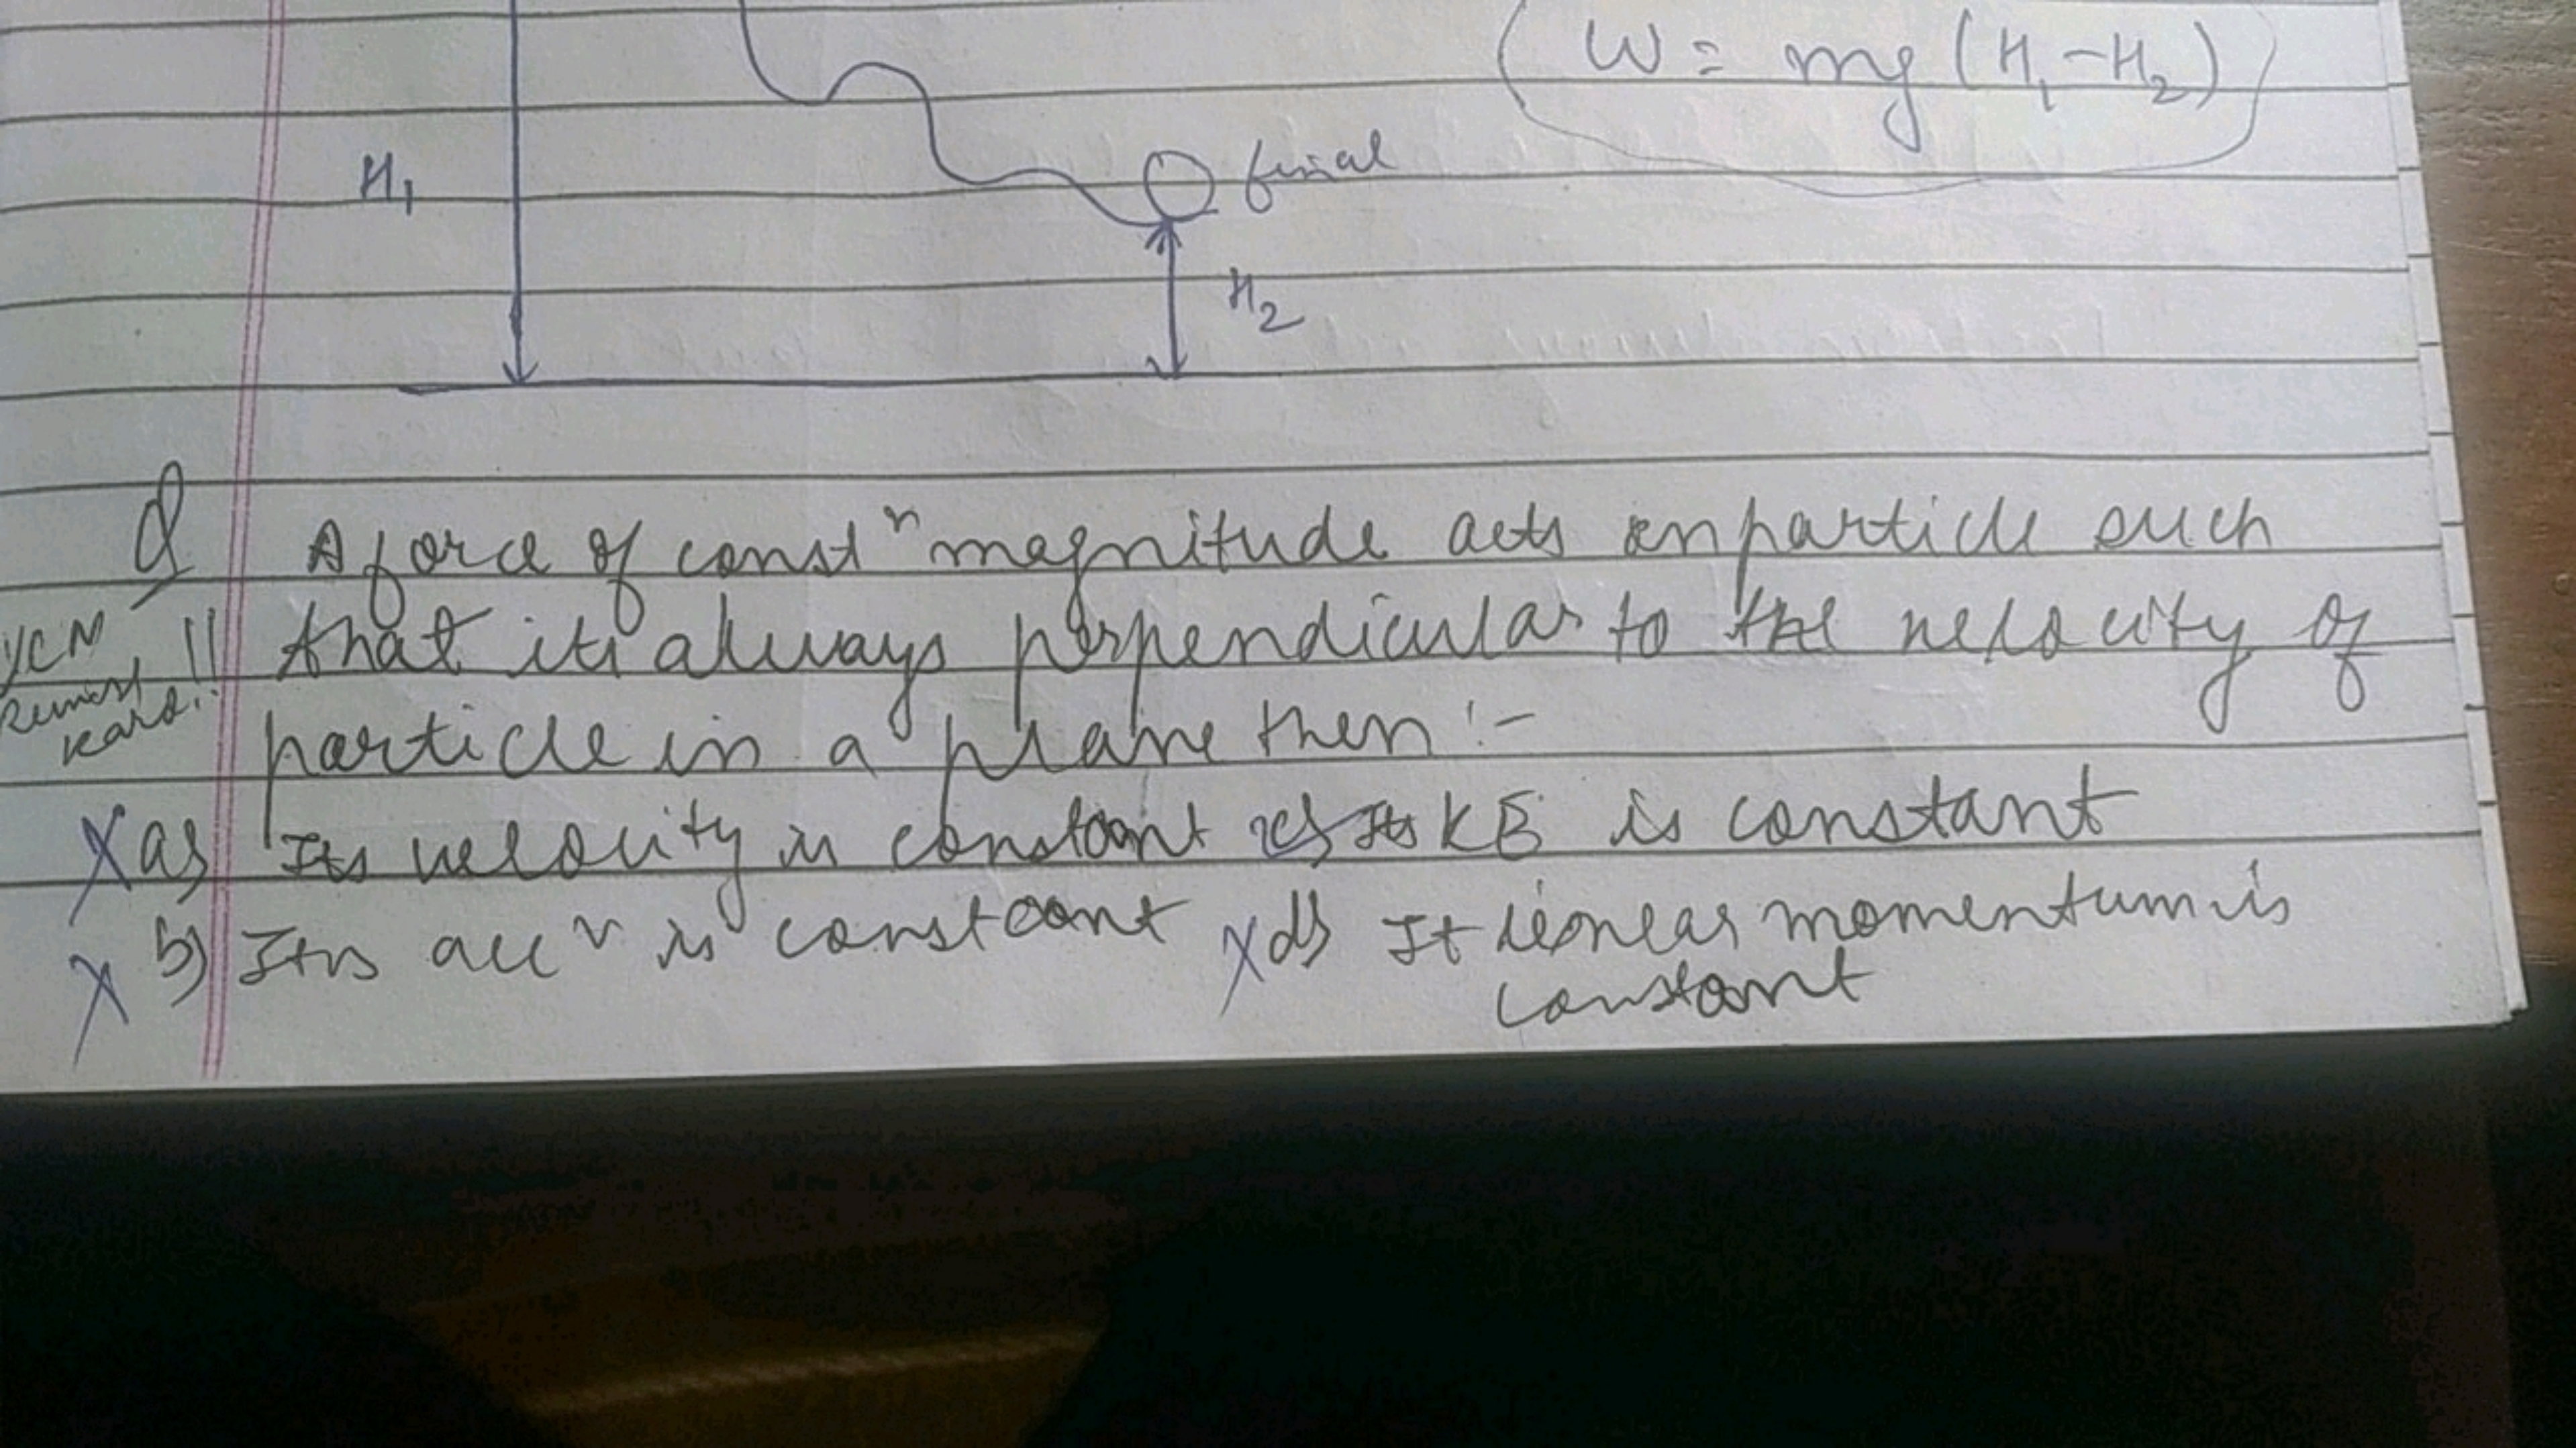 W = mg (H1-H2)
H1
final
H2
Q A force of const n magnitude acts on particle such
that its always perpendicular to the velocity of
particle in a plane then :-
X a) Its velocity is constant c) Its KE is constant
X b) Its acc n is constant X d) It lienear momentum is
constant
UCM !!
kard!!